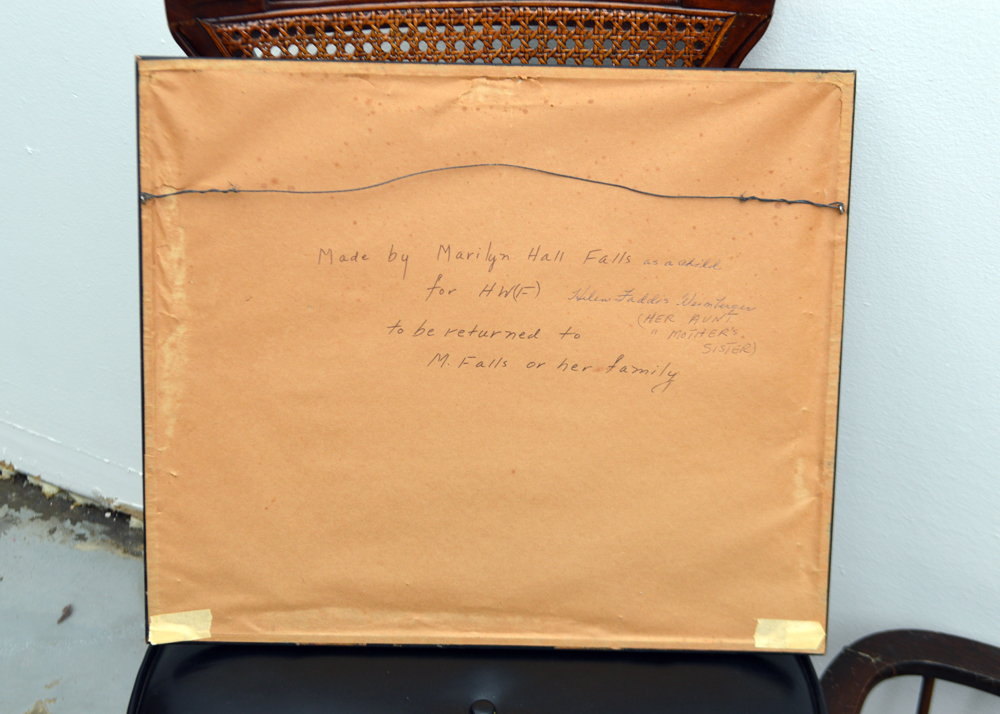 Made by Marilyn Hall Falls as a child
for HW(F) Helen Faddis Weinberger
(HER AUNT
" MOTHER'S
SISTER)
to be returned to
M. Falls or her family